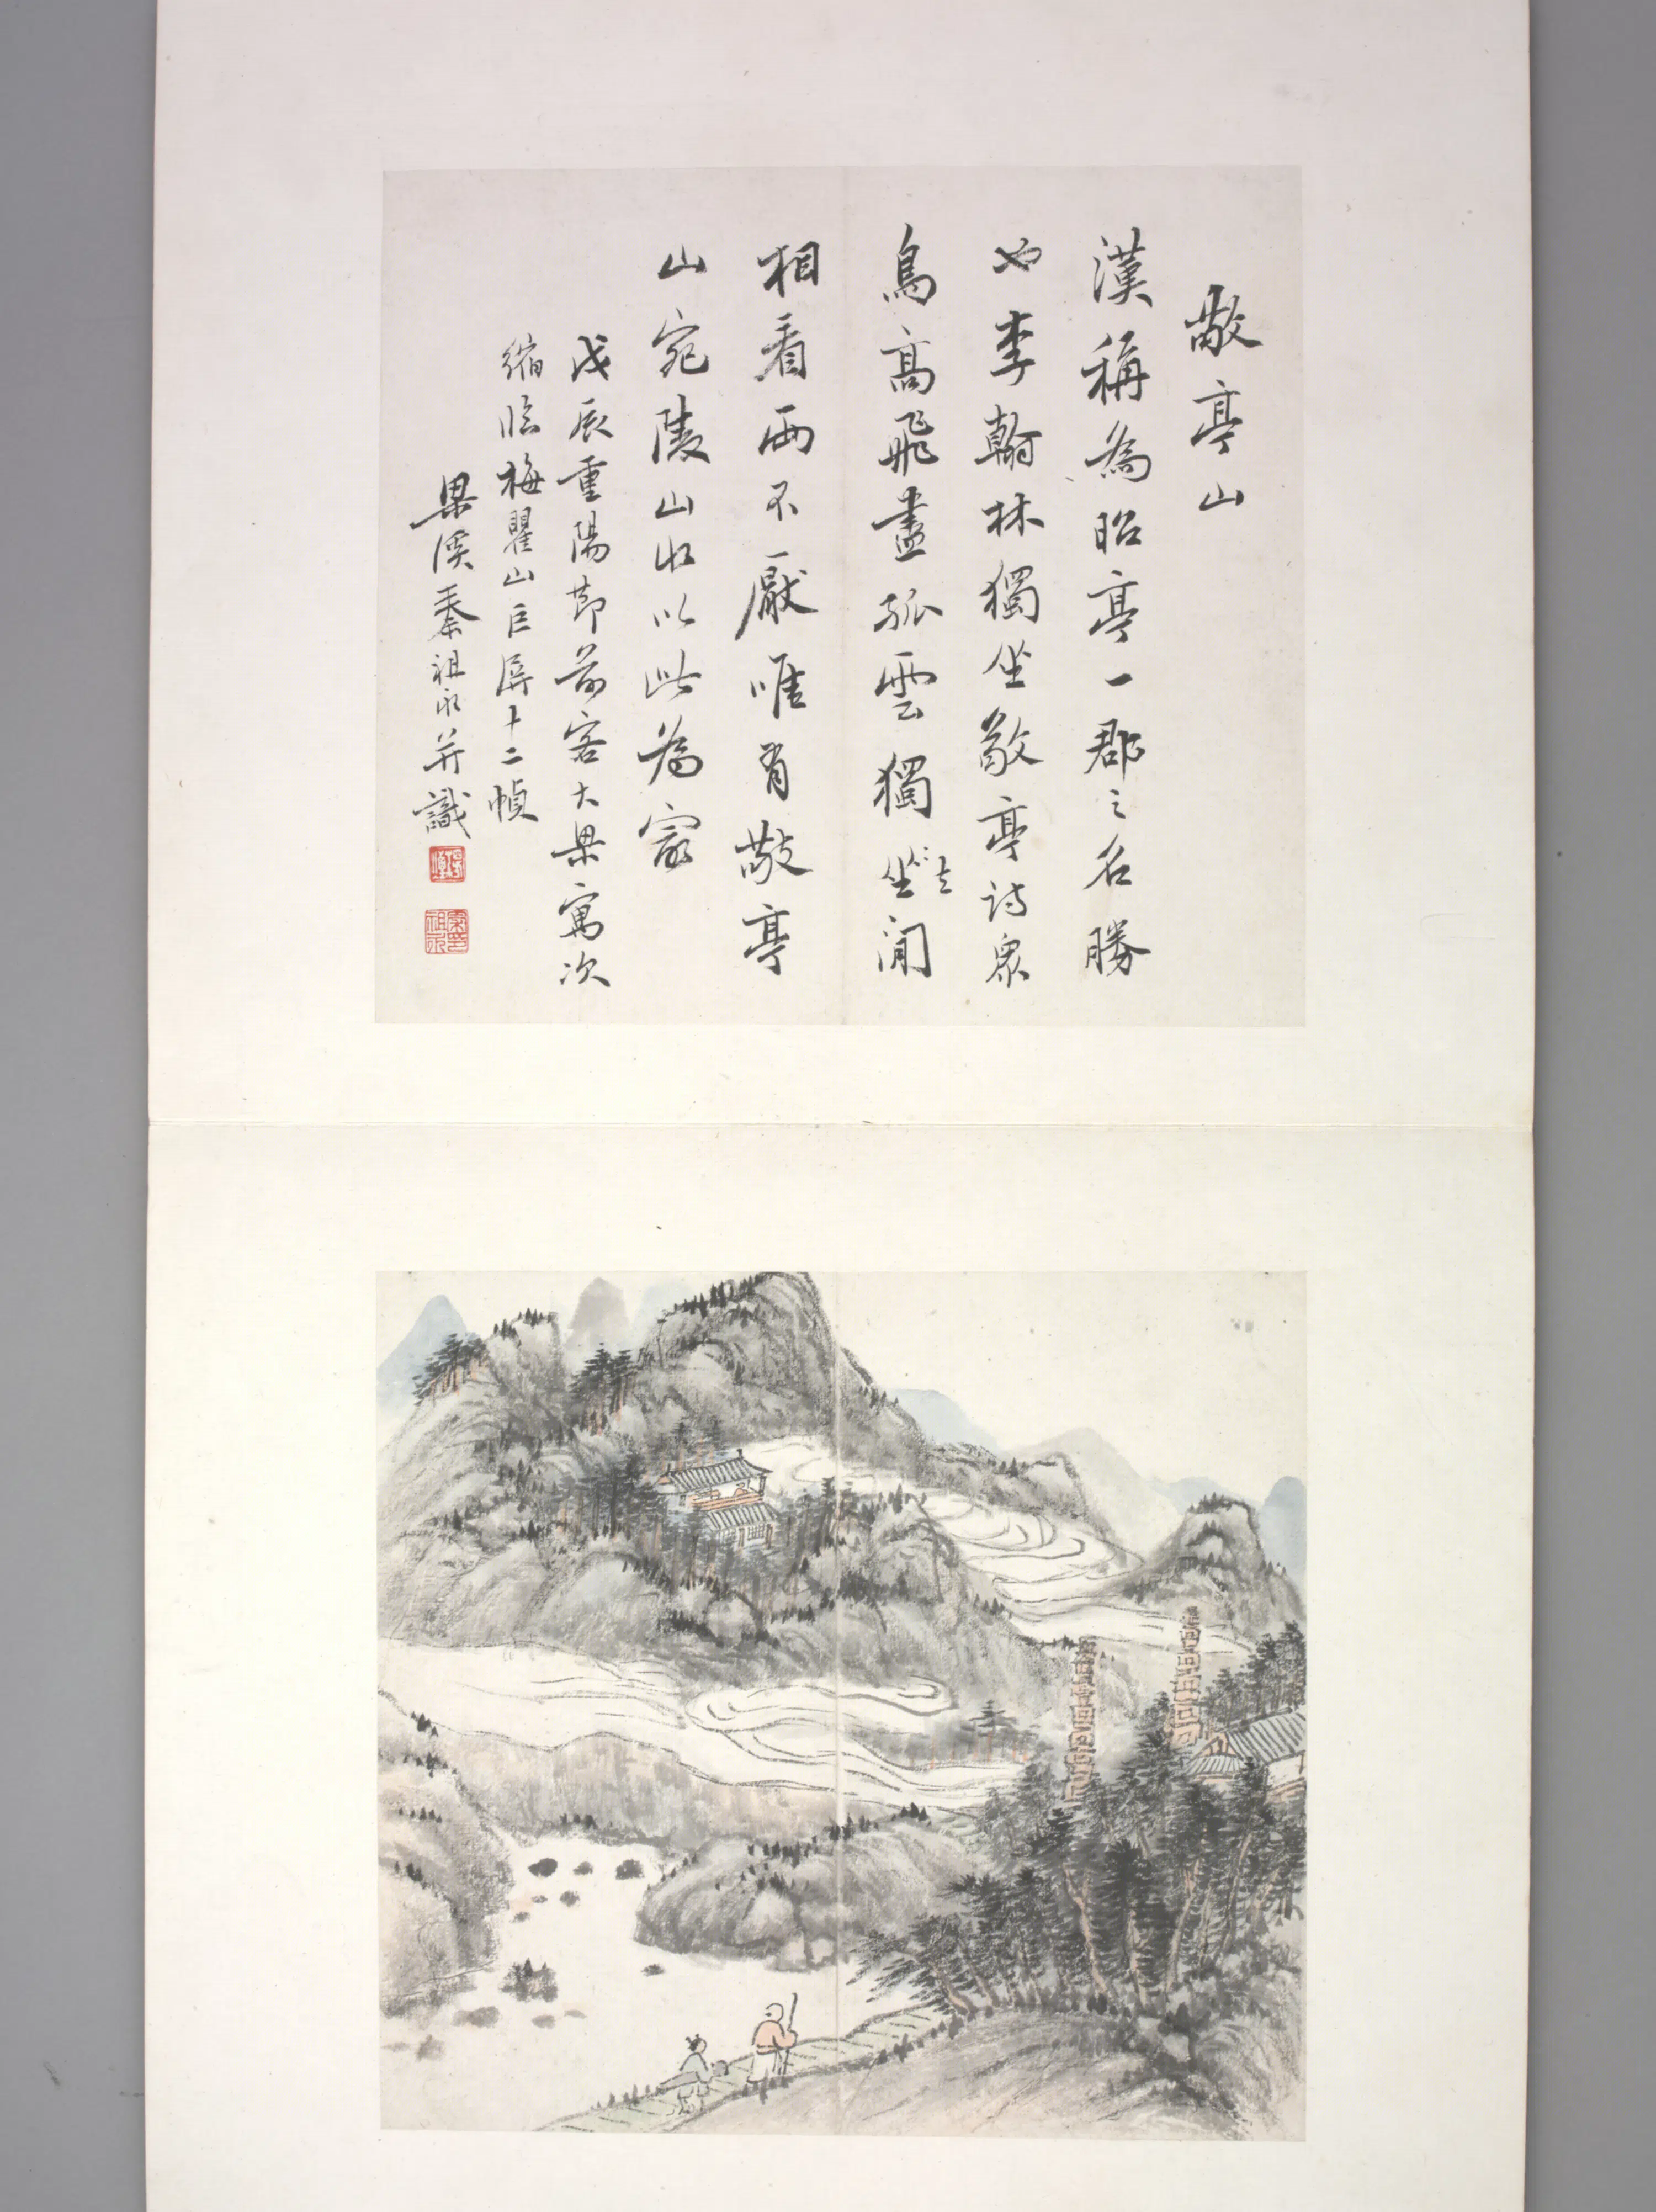 敬亭山
漢稱為昭亭一郡之名勝
也李翰林獨坐敬亭詩眾
鳥高飛盡孤雲獨坐去閒
相看兩不厭唯有敬亭
山宛陵山水以此為最
戊辰重陽節前客大梁寓次
縮臨梅瞿山巨屏十二幀
梁溪秦祖永并識
秦印
祖永